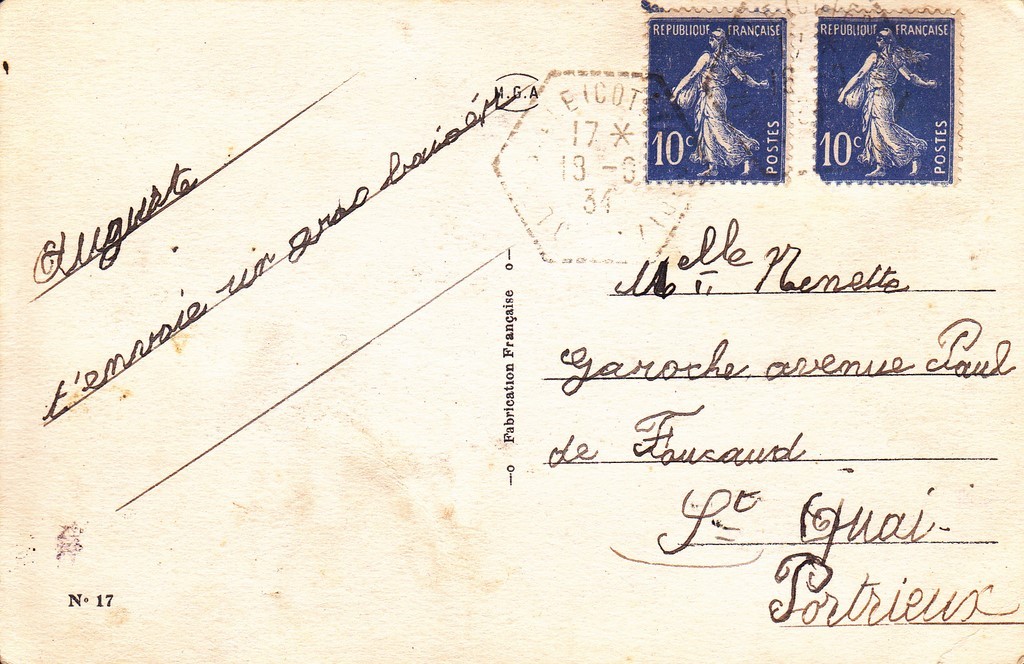 Auguste
t'envoie un gros baiser
M.G.A
17 *
34
RÉPUBLIQUE FRANÇAISE
10c
POSTES
RÉPUBLIQUE FRANÇAISE
10c
POSTES
—o Fabrication Française o—
Melle Nenette
Garoche avenue Paul
de Foucaud
St Quai-
Portrieux
No 17